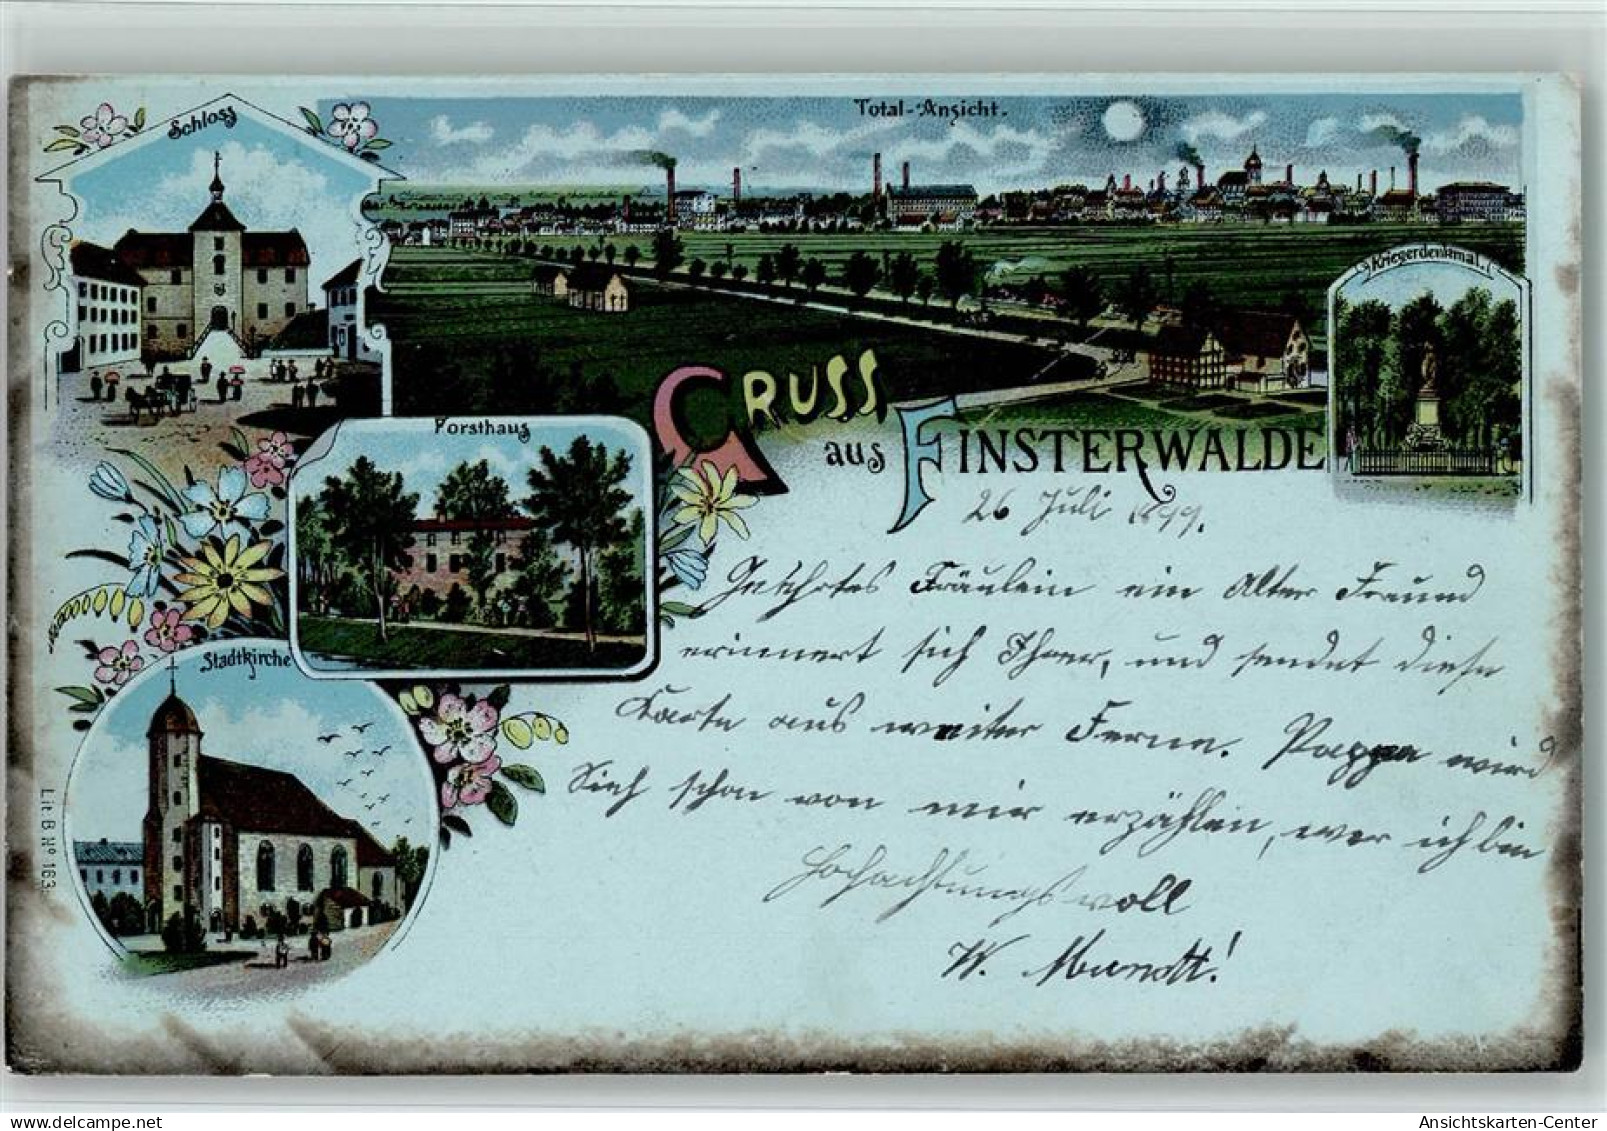 Schloss
Total-Ansicht.
Kriegerdenkmal.
Forsthaus
Gruss
aus Finsterwalde
26 Juli 1899.
Geehrtes Fräulein ein Alter Freund
erinnert sich Ihrer, und sendet diese
Karte aus weiter Ferne. Pappa wird
Sich schon von mir erzählen, wer ich bin
Hochachtungsvoll
W. Mundt!
Stadtkirche
Lit. B Nº 163.
Ansichtskarten-Center